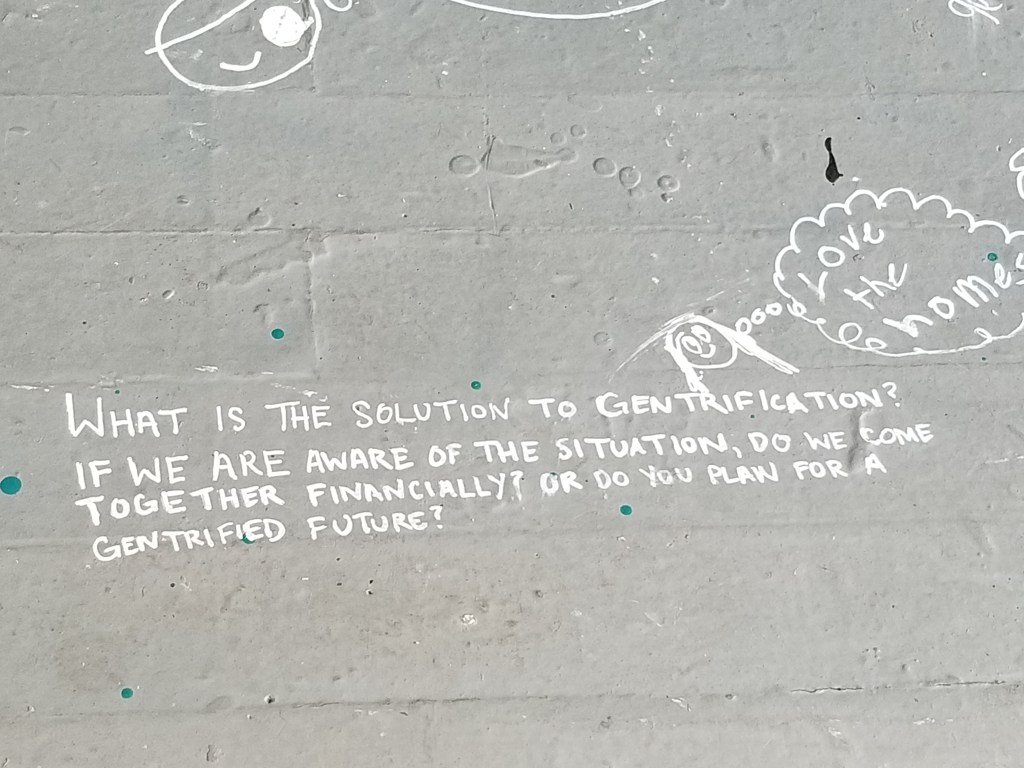 Love
the
homes
WHAT IS THE SOLUTION TO GENTRIFICATION?
IF WE ARE AWARE OF THE SITUATION, DO WE COME
TOGETHER FINANCIALLY? OR DO YOU PLAN FOR A
GENTRIFIED FUTURE?